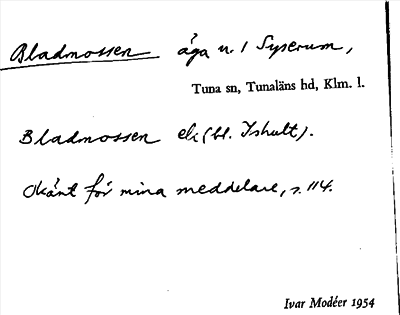 Bladmossen äga n. / Syserum,
Tuna sn, Tunaläns hd, Klm. l.
Bladmossen ek (bl. Ishult).
Okänt för mina meddelare, s. 114.
Ivar Modéer 1954